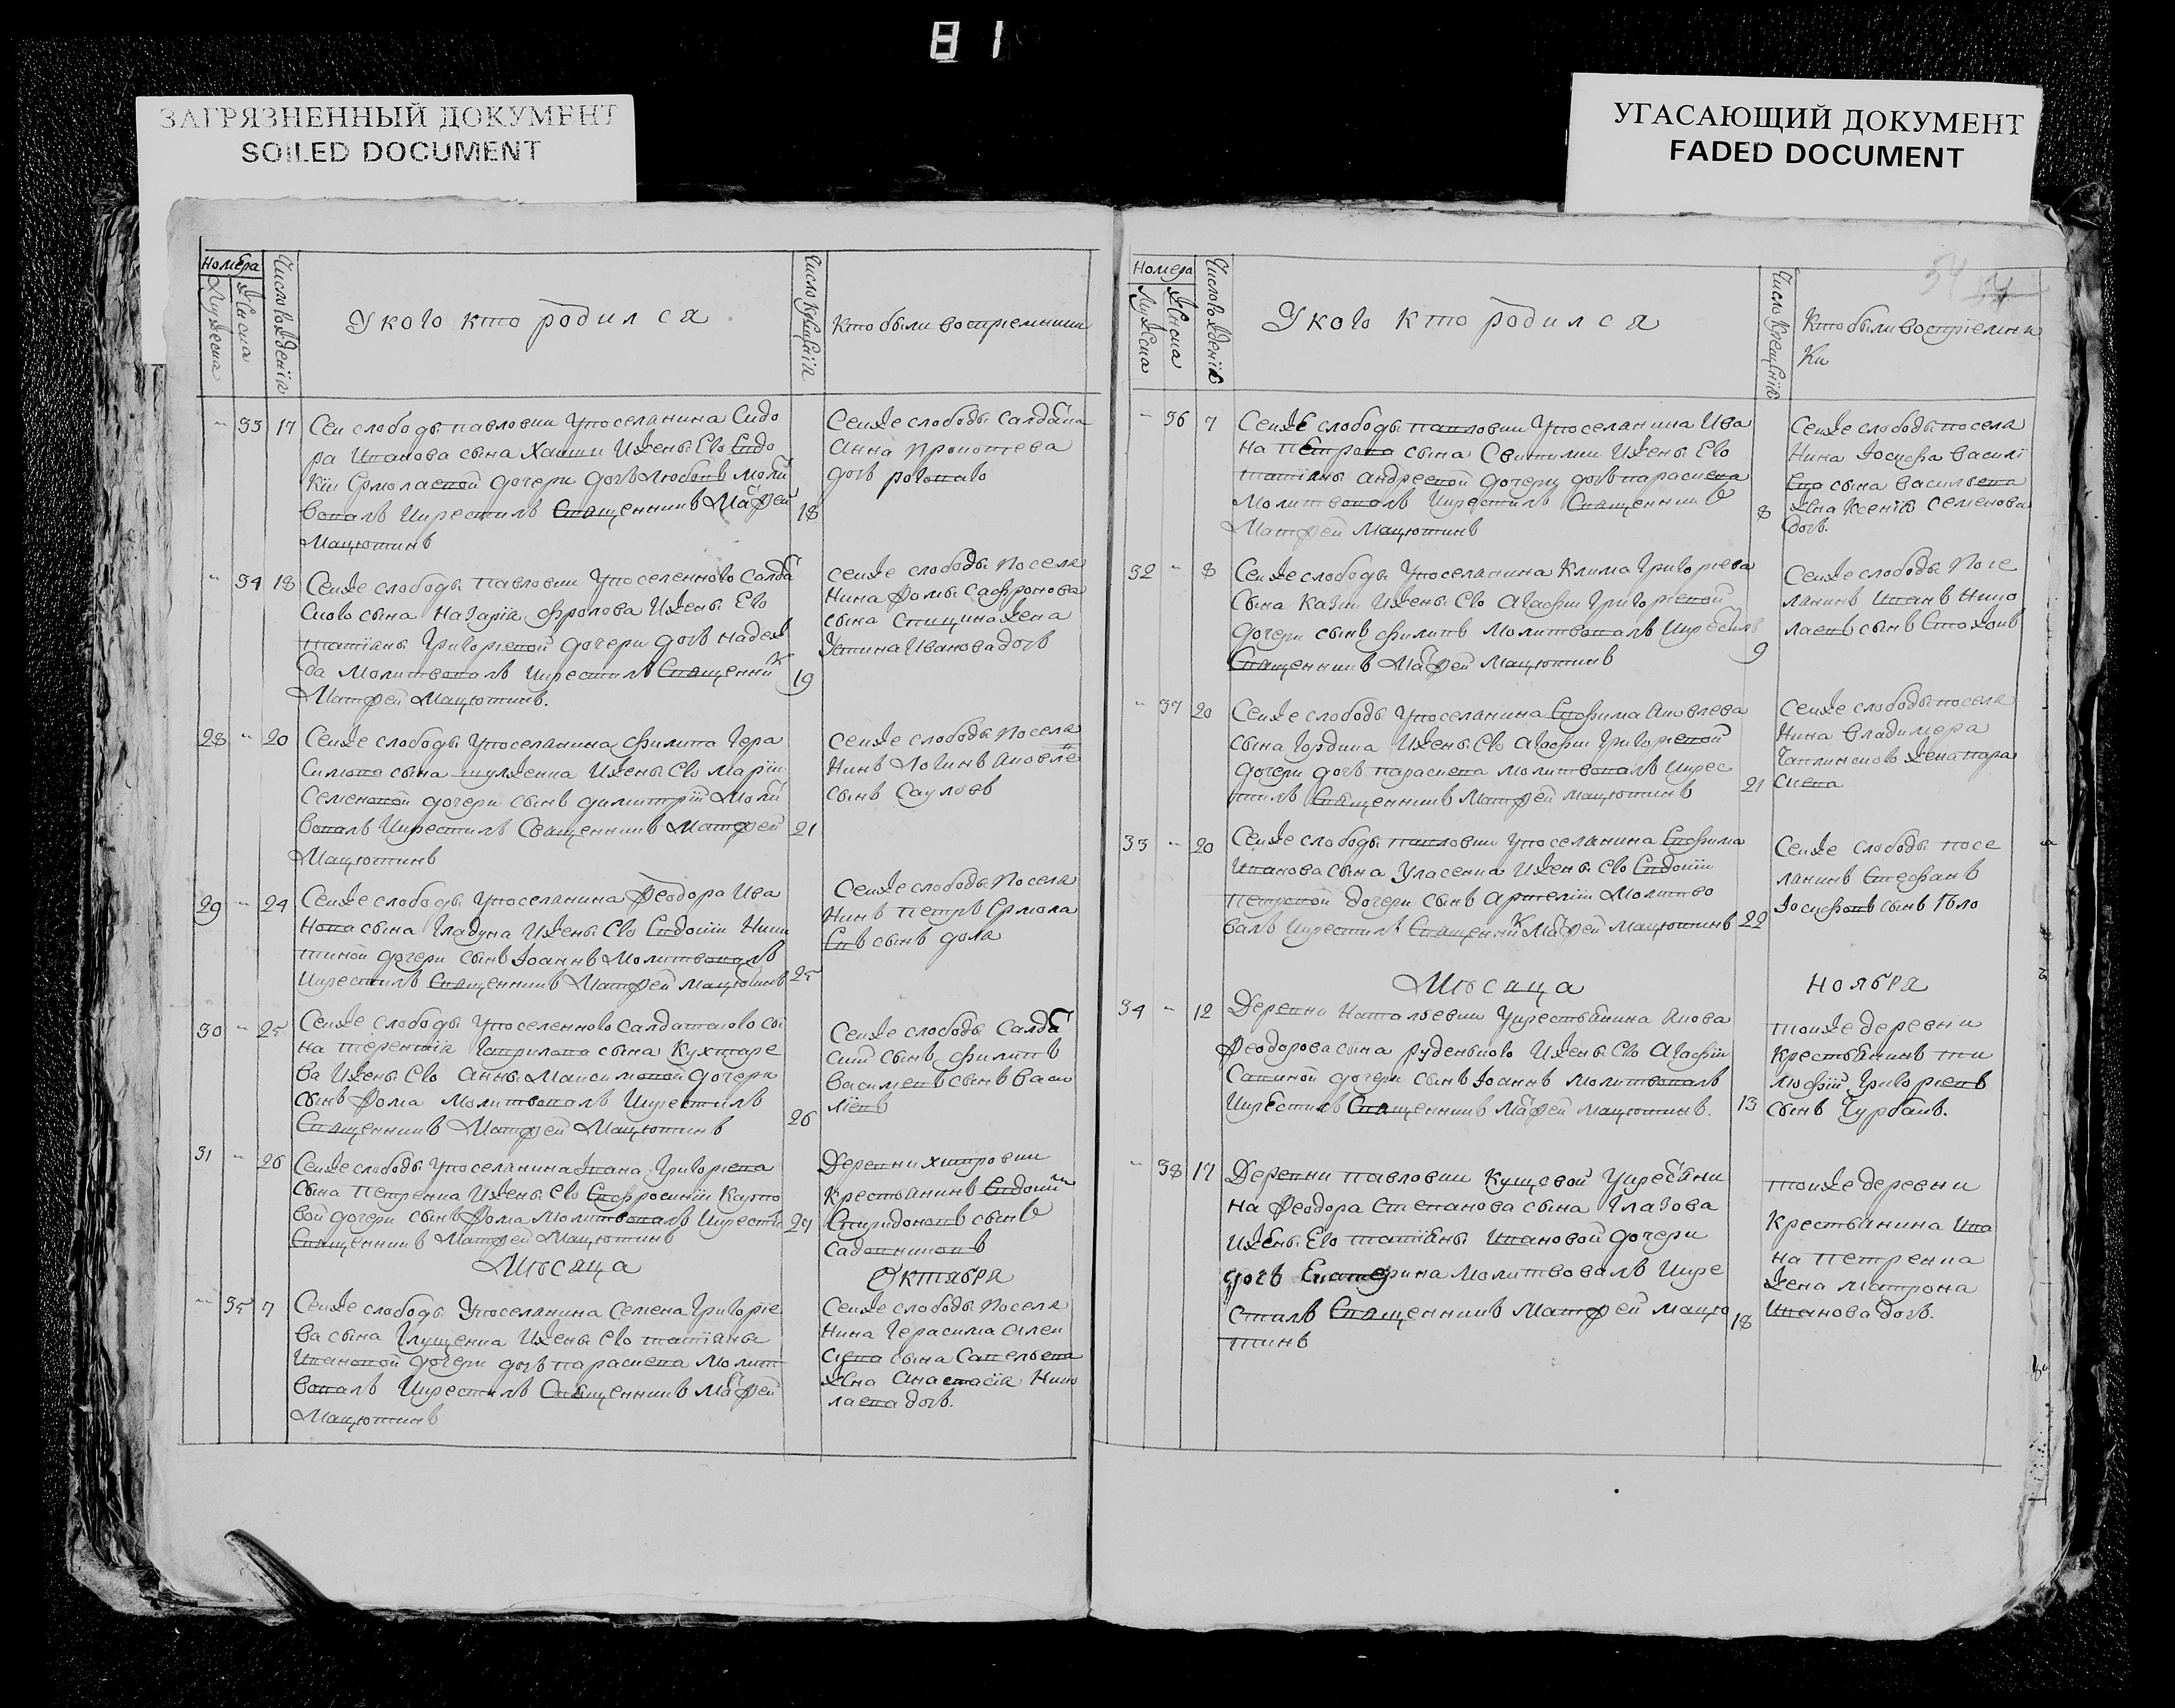 81
ЗАГРЯЗНЕННЫЙ ДОКУМЕНТ
SOILED DOCUMENT
УГАСАЮЩИЙ ДОКУМЕНТ
FADED DOCUMENT
Номера
Мужеска
Женска
Число рожденїя
У кого кто родился
Число крещенїя
Кто были восприемники
- 33 17 Сей слободы павловки у поселянина Сидо
ра Иванова сына Хашки и жены Его Евдо
кїи Ермолаевой дочери дочь любовь моли
вовалъ и крестилъ Священникъ Мафей
Мацютинъ
18
Сей же слободы Салдацка
Анна Прокопїева
дочь
- 34 18 Сей же слободы павловки у поселенного Салда
ского сына Назарїя фролова и жены Его
татїаны Григорїевой дочери дочь надеж
да молитвовалъ и крестилъ Священник
Матфей Мацютинъ.
19
Сей же слободы посела
нина Фомы Сафронова
сына Спицина жена
Устина Иванова дочь
28 - 20 Сей же слободы у поселанина филипа Гера
симова сына шулженка и жены Его Марїи
Семеновой дочери сынъ димитрїй Моли
вовалъ и крестилъ Священникъ Матфей
Мацютинъ
21
Сей же слободы посела
нинъ Логинъ яковле
сынъ Сауловъ
29 - 24 Сей же слободы у поселанина Феодора Ива
нова сына Гладуна и жены Его Евдокїи Ники
тиной дочери сынъ Iоаннъ Молитвовалъ
и крестилъ Священникъ Матфей Мацютинъ
25
Сей же слободы посела
нинъ петръ Ермола
Евъ сынъ дола
30 - 25 Сей же слободы у поселенного Салдатского сы
на терентїя Гаврилова сына Кухтаре
ва и жены Его Анны Максимовой дочери
сынъ Фома молитвовалъ и крестилъ
Священникъ Матфей Мацютинъ
26
Сей же слободы Салда
ский сынъ филипъ
Василїевъ сынъ Васи
лїевъ
31 - 26 Сей же слободы у поселанина Ивана Григорїева
сына петренка и жены Его Евфросинїи Карпо
вой дочери сынъ Фома молитвовалъ и крести
Священникъ Матфей Мацютинъ
27
Деревни хитровки
крестьянинъ Евдоким
Спиридоновъ сынъ
Садовниковъ
Мѣсяца Октября
- 35 7 Сей же слободы у поселанина Семена Григорїе
ва сына Глущенка и жены Его татїаны
Ивановой дочери дочь параскева Молит
вовалъ и крестилъ Священникъ Мафей
Мацютинъ
Сей же слободы посела
нина Герасима Алек
сїева сына Савельева
жена Анастасїя Нико
лаева дочь.
54
Номера
Мужеска
Женска
Число рожденїя
У кого кто родился
Число крещенїя
Кто были восприемни
ки
- 36 7 Сей же слободы павловки у поселанина Ива
на петрова сына Свитилки и жены Его
татїаны андреевой дочери дочь параскева
Молитвовалъ и крестилъ Священникъ
Матфей Мацютинъ
8
Сей же слободы посела
нина Iосифа Василї
Ева сына Васильева
жена Ксенїя Семенова
дочь.
32 - 8 Сей же слободы у поселанина Клима Григорїева
сына Казки и жены Его Агафїи Григорїевой
дочери сынъ филипъ Молитвовалъ и крестилъ
Священникъ Мафей Мацютинъ
9
Сей же слободы Посе
ланинъ Иванъ Нико
лаевъ сынъ
- 37 20 Сей же слободы у поселанина Евфима Яковлева
сына Гордика и жены Его Агафїи Григорїевой
дочери дочь параскева молитвовалъ и крес
тилъ Священникъ Матфей мацютинъ
21
Сей же слободы посела
нина Владимера
Чаплинского жена пара
скева
33 - 20 Сей же слободы павловки у поселанина Евфима
Иванова сына Уласенка и жены Его Евдокїи
петровой дочери сынъ артемїй Молитво
валъ и крестилъ Священник Мафей мацютинъ
22
Сей же слободы посе
ланинъ Стефанъ
Iосифовъ сынъ
Мѣсяца Ноября
34 - 12 Деревни Натальевки у крестьянина Якова
Феодорова сына руденького и жены Его Агафїи
Савиной дочери сынъ Iоаннъ молитвовалъ
и крестилъ Священникъ Мафей мацютинъ.
13
той же деревни
крестьянинъ ти
мофїй Григорїевъ
сынъ Чурбаевъ.
- 38 17 Деревни павловки Кущевой у кресьяни
на Феодора Степанова сына Глазова
и жены Его татїаны Ивановой дочери
дочь Екатерина молитвовалъ и кре
стилъ Священникъ Матфей мацю
тинъ
18
той же деревни
крестьянина Ива
на петренка
жена матрона
Иванова дочь.